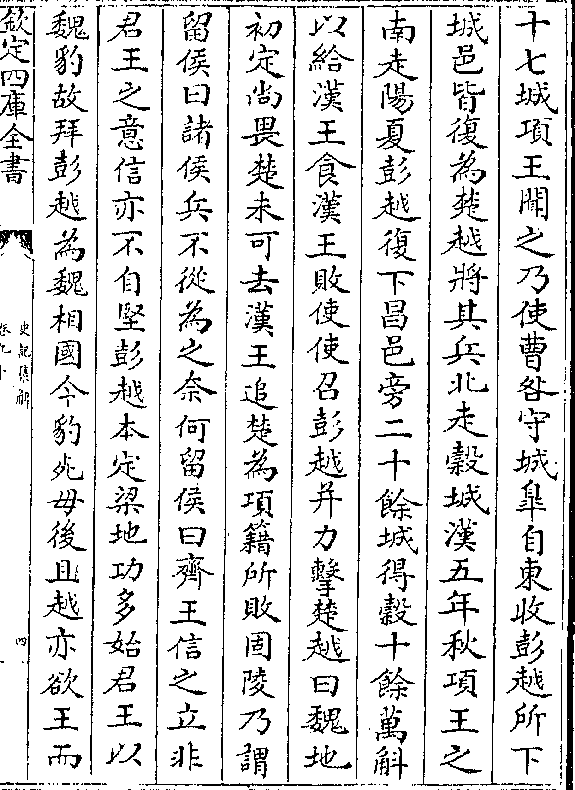 十七城項王聞之乃使曹咎守城臯自東收彭越所下
城邑皆復為楚越將其兵北走穀城漢五年秋項王之
南走陽夏彭越復下昌邑旁二十餘城得穀十餘萬斛
以給漢王食漢王敗使使召彭越并力擊楚越曰魏地
初定尚畏楚未可去漢王追楚為項籍所敗固陵乃謂
留侯曰諸侯兵不從為之奈何留侯曰齊王信之立非
君王之意信亦不自堅彭越本定梁地功多始君王以
魏豹故拜彭越為魏相國今豹死毋後且越亦欲王而
欽定四庫全書
史記集解
卷九十
四